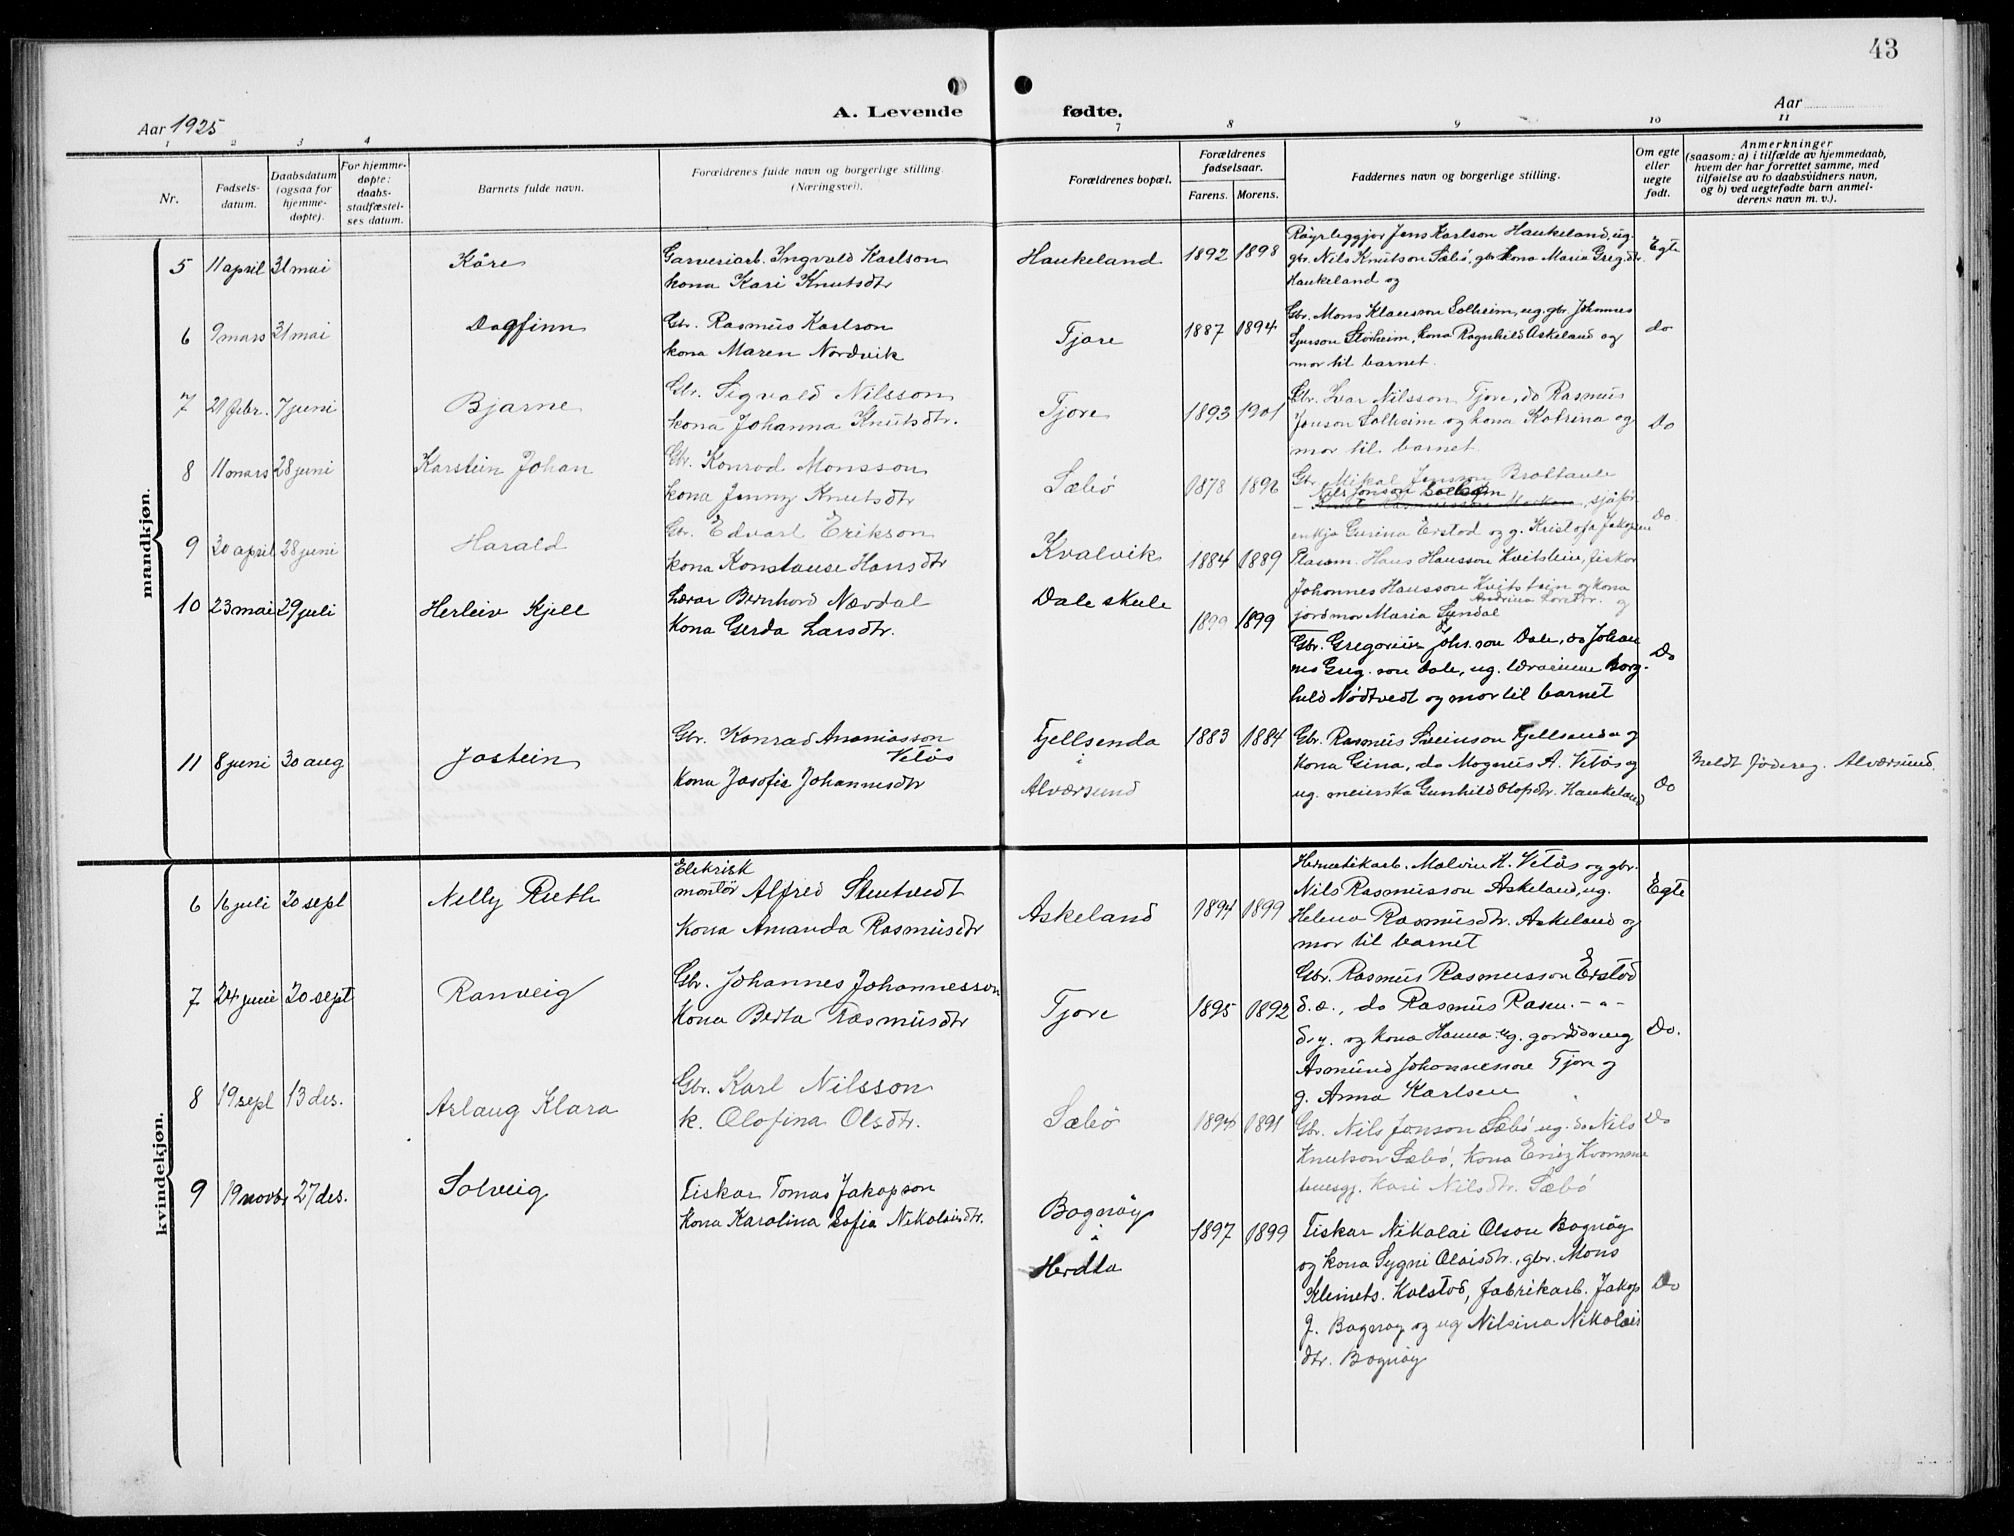 43
A. Levende fødte.
Aar 1925
Aar
1 2 3 4 7 8 9 10 11
Nr.
Fødsels-
datum.
Daabsdatum
(ogsaa for
hjemme-
døpte).
For hjemme-
døpte:
daabs-
stadfæstel-
ses datum.
Barnets fulde navn.
Forældrenes fulde navn og borgerlige stilling.
(Næringsvei).
Forældrenes bopæl.
Forældrenes
fødselsaar.
Farens. Morens.
Faddernes navn og borgerlige stilling.
Om egte
eller
uegte
født.
Anmerkninger
(saasom: a) i tilfælde av hjemmedaab,
hvem der har forrettet samme, med
tilføielse av to daabsvidners navn,
og b) ved uegtefødte barn anmel-
derens navn m. v.).
mandkjøn.
5 11 april 31 mai Kåre
Garveriarb. Ingvald Karlson
kona Kari Knutsdtr
Haukeland 1892 1898
Røyrleggjar Jens Karlson Haukeland, ug.
gbr. Nils Knutson Sæbø, gbr kona Maria Greg.dtr.
Haukeland og
Egte
6 9 mars 31 mai Dagfinn
Gbr. Rasmus Karlson
kona Maren Nordvik
Tjore 1887 1894
Gbr. Mons Klausson Solheim, ug. gbr. Johannes
Sjurson Storheim, kona Ragnhild Askeland og
mor til barnet.
do
7 21 febr. 7 juni Bjarne
Gbr. Sigvald Nilsson
kona Johanna Knutsdtr.
Tjore 1893 1901
Gbr. Ivar Nilsson Tjore, do Rasmus
Jonson Solheim og kona Katrina og
mor til barnet
Do
8 11 mars 28 juni Karstein Johan
Gbr. Konrad Monsson
kona Jenny Knutsdtr
Sæbø 1878 1896
Gbr. Mikal Jensson Brattaule
Nils Jonson Solheim
- , sjåfør
enkja Gurina Erstad og g. Kristofa Jakopsen
Do
9 30 april 28 juni Harald
Gbr. Edvart Erikson
kona Konstanse Hansdtr
Kvalvik 1884 1889
Plasm. Hans Hansson Kvitstein, fiskar
Johannes Hansson Kvitstein og kona
Andrina og
jordmor Maria Syndal
10 23 mai 29 juli Herleiv Kjell
Lærar Bernhard Nævdal
Kona Gerda Larsdtr.
Dale skule 1899 1899
Gbr. Gregorius Johs.son Dale, do Johan
nes Greg.son Dale, ug. lærarinne Borg-
hild Nødtvedt og mor til barnet
Do
11 8 juni 30 aug Jostein
Gbr. Konrad Ananiasson
Vetås
Kona Josefie Johannesdtr
Fjellsenda
i
Alværsund
1883 1884
Gbr. Rasmus Sveinson Fjellsenda og
Kona Gina, do Magnus A. Vetås og
ug. meierska Gunhild Olafsdtr. Haukeland
Do
Meldt födereg. Alværsund.
kvindekjøn.
6 16 juli 20 sept Nelly Ruth
Elektrisk
montør Alfred Stentvedt
Kona Amanda Rasmusdtr
Askeland 1894 1899
Hermetikarb. Malvin H. Vetås og gbr.
Nils Rasmusson Askeland, ug.
Helena Rasmusdtr. Askeland og
mor til barnet
Egte
7 24 juni 20 sept Ranveig
Gbr. Johannes Johannesson
Kona Berta Rasmusdtr
Tjore 1895 1892
Gbr. Rasmus Rasmusson Erstad
d.e., do Rasmus Rasm. - " -
d.y. og kona Hanna ug. gardsdreng
Asmund Johannesson Tjore og
g. Anna Karlsen
Do.
8 19 sept 13 des. Aslaug Klara
Gbr. Karl Nilsson
k. Olafina Olsdtr.
Sæbø 1894 1891
Gbr. Nils Jonson Sæbø ug. do Nils
Knutson Sæbø, Kona
tenesgj. Kari Nilsdtr. Sæbø
Do
9 19 novbr 27 des. Solveig
Fiskar Tomas Jakopson
Kona Karolina Sofia Nikolaisdtr.
Bognøy
i
Herdla
1897 1899
Fiskar Nikolai Olson Bognøy
og kona Sygni Olaisdtr., gbr. Mons
Klemets. Kolstad, fabrikarb. Jakop
J. Bognøy og ug Nilsina Nikolais
dtr. Bognøy
Do